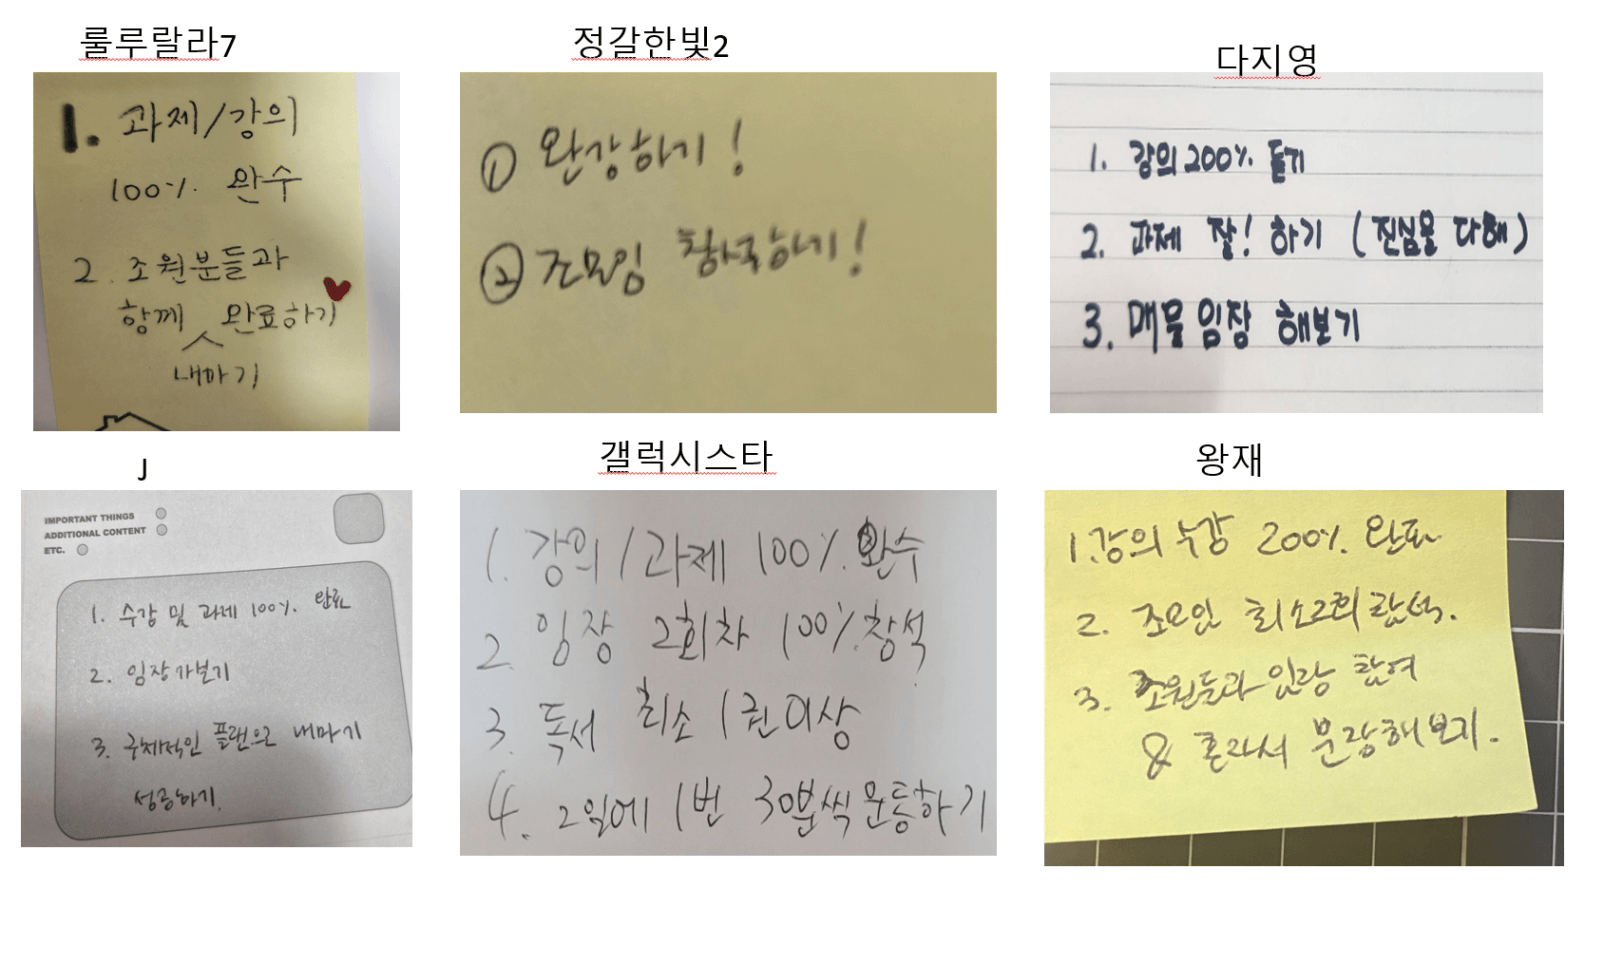 룰루랄라7
1. 과제/강의
100% 완수
2. 조원분들과
함께 완료하기
내마기
정갈한빛2
① 완강하기!
② 조모임 참석하기!
다지영
1. 강의 200% 듣기
2. 과제 잘! 하기 (진심을 다해)
3. 매물임장 해보기
J
IMPORTANT THINGS
ADDITIONAL CONTENT
ETC.
1. 수강 및 과제 100% 완료
2. 임장가보기
3. 구체적인 플랜으로 내마기
성공하기.
갤럭시스타
1. 강의/과제 100% 완수
2. 임장 2회차 100% 참석
3. 독서 최소 1권이상
4. 2일에 1번 30분씩 운동하기
왕재
1.강의 수강 200% 완료
2. 조모임 최소2회 참석.
3. 조원들과 임장 참여
& 혼자서 분장해보기.